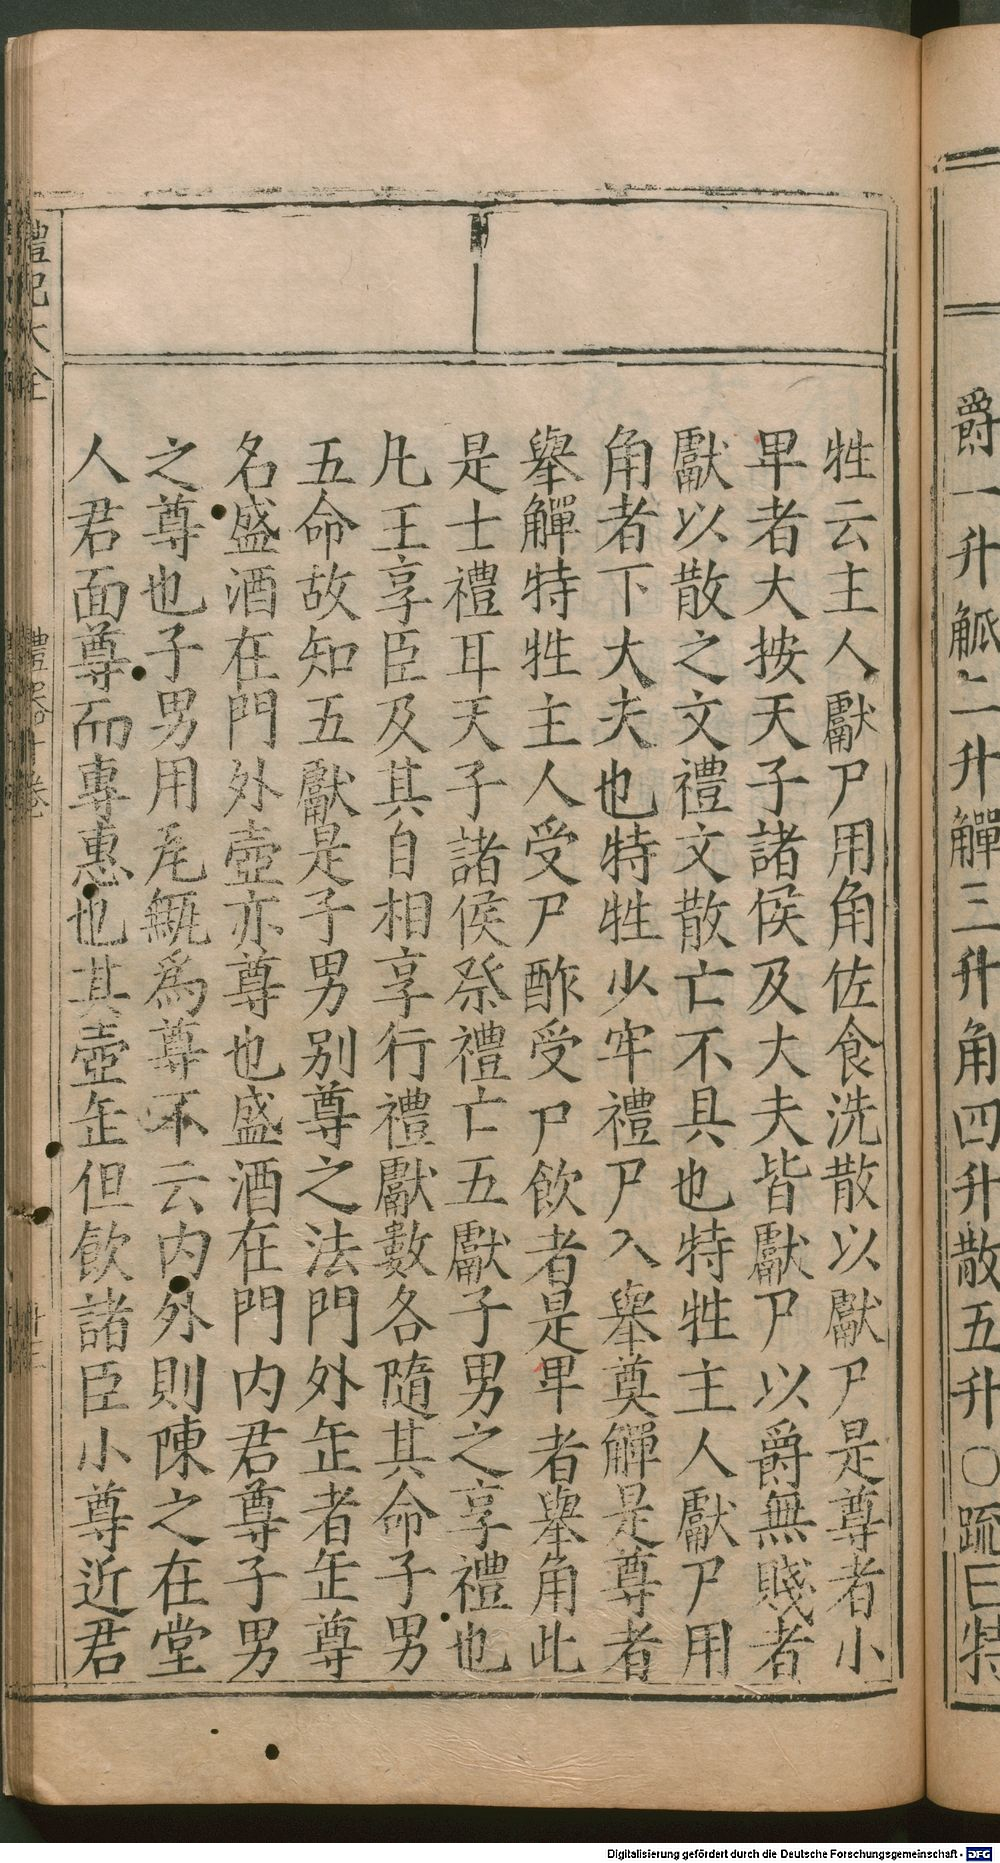 爵一升觚二升觶三升角四升散五升○疏曰特
牲云主人獻尸用角佐食洗散以獻尸是尊者小
卑者大按天子諸侯及大夫皆獻尸以爵無賤者
獻以散之文禮文散亡不具也特牲主人獻尸用
角者下大夫也特牲少牢禮尸入舉奠觶是尊者
舉觶特牲主人受尸酢受尸飲者是卑者舉角此
是士禮耳天子諸侯祭禮亡五獻子男之享禮也
凡王享臣及其自相享行禮獻數各隨其命子男
五命故知五獻是子男别尊之法門外缶者缶尊
名盛酒在門外壺亦尊也盛酒在門内君尊子男
之尊也子男用瓦甒為尊不云内外則陳之在堂
人君面尊而專惠也其壺缶但飲諸臣小尊近君
禮記大全
禮器十卷
Digitalisierung gefördert durch die Deutsche Forschungsgemeinschaft - DFG